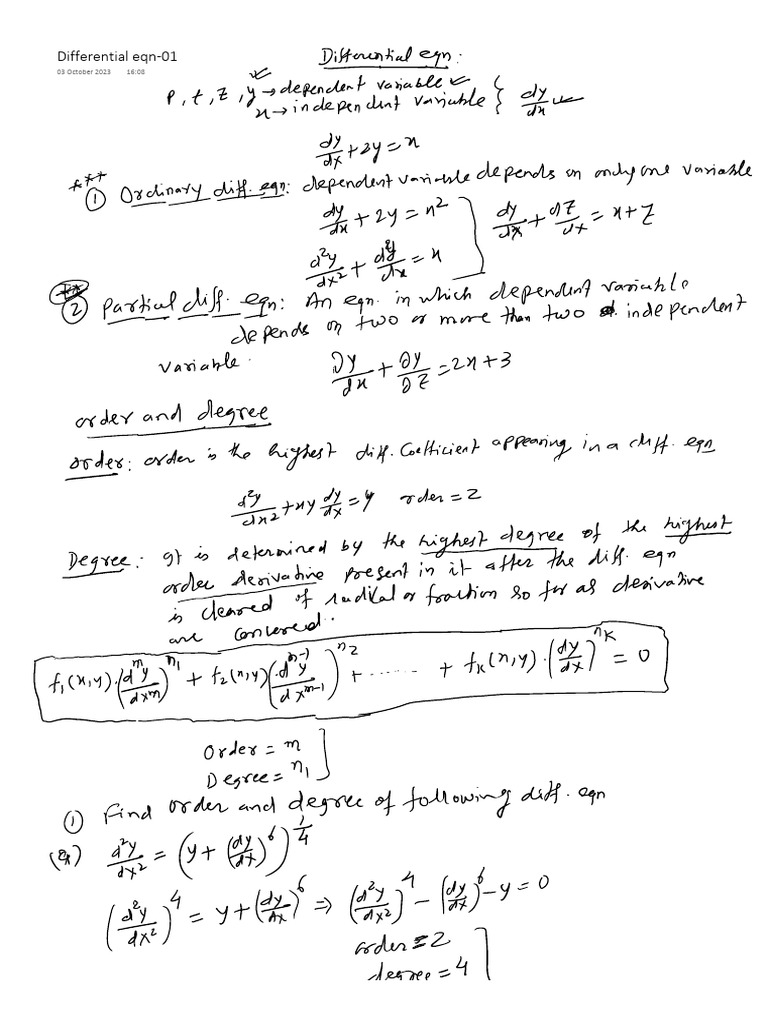 Differential eqn-01
03 October 2023 16:08
Differential eqn:
P, t, z, y → dependent variable
x → independent variable } dy/dx
dy/dx + 2y = x
*** ① Ordinary diff. eqn: dependent variable depends on only one variable
dy/dx + 2y = x²
d²y/dx² + dy/dx = x ] dy/dx + dz/dx = x + z
** ② Partial diff. eqn: An eqn. in which dependent variable
depends on two or more than two independent
variable.
∂y/∂x + ∂y/∂z = 2x + 3
order and degree
order: order is the highest diff. Coefficient appearing in a diff. eqn
d²y/dx² + xy dy/dx = y rder = 2
Degree: It is determined by the highest degree of the highest
order derivative present in it after the diff. eqn
is cleared of radical or fraction so for as derivative
are concered.
f₁(x,y).(dᵐy/dxᵐ)^n₁ + f₂(x,y)(dᵐ⁻¹y/dxᵐ⁻¹)^n₂ + ...... + fₖ(x,y).(dy/dx)^nₖ = 0
Order = m
Degree = n₁ ]
① Find order and degree of following diff. eqn
d²y/dx² = (y + (dy/dx)⁶)^1/4
(d²y/dx²)⁴ = y + (dy/dx)⁶ ⇒ (d²y/dx²)⁴ - (dy/dx)⁶ - y = 0
order = 2
degree = 4 ]